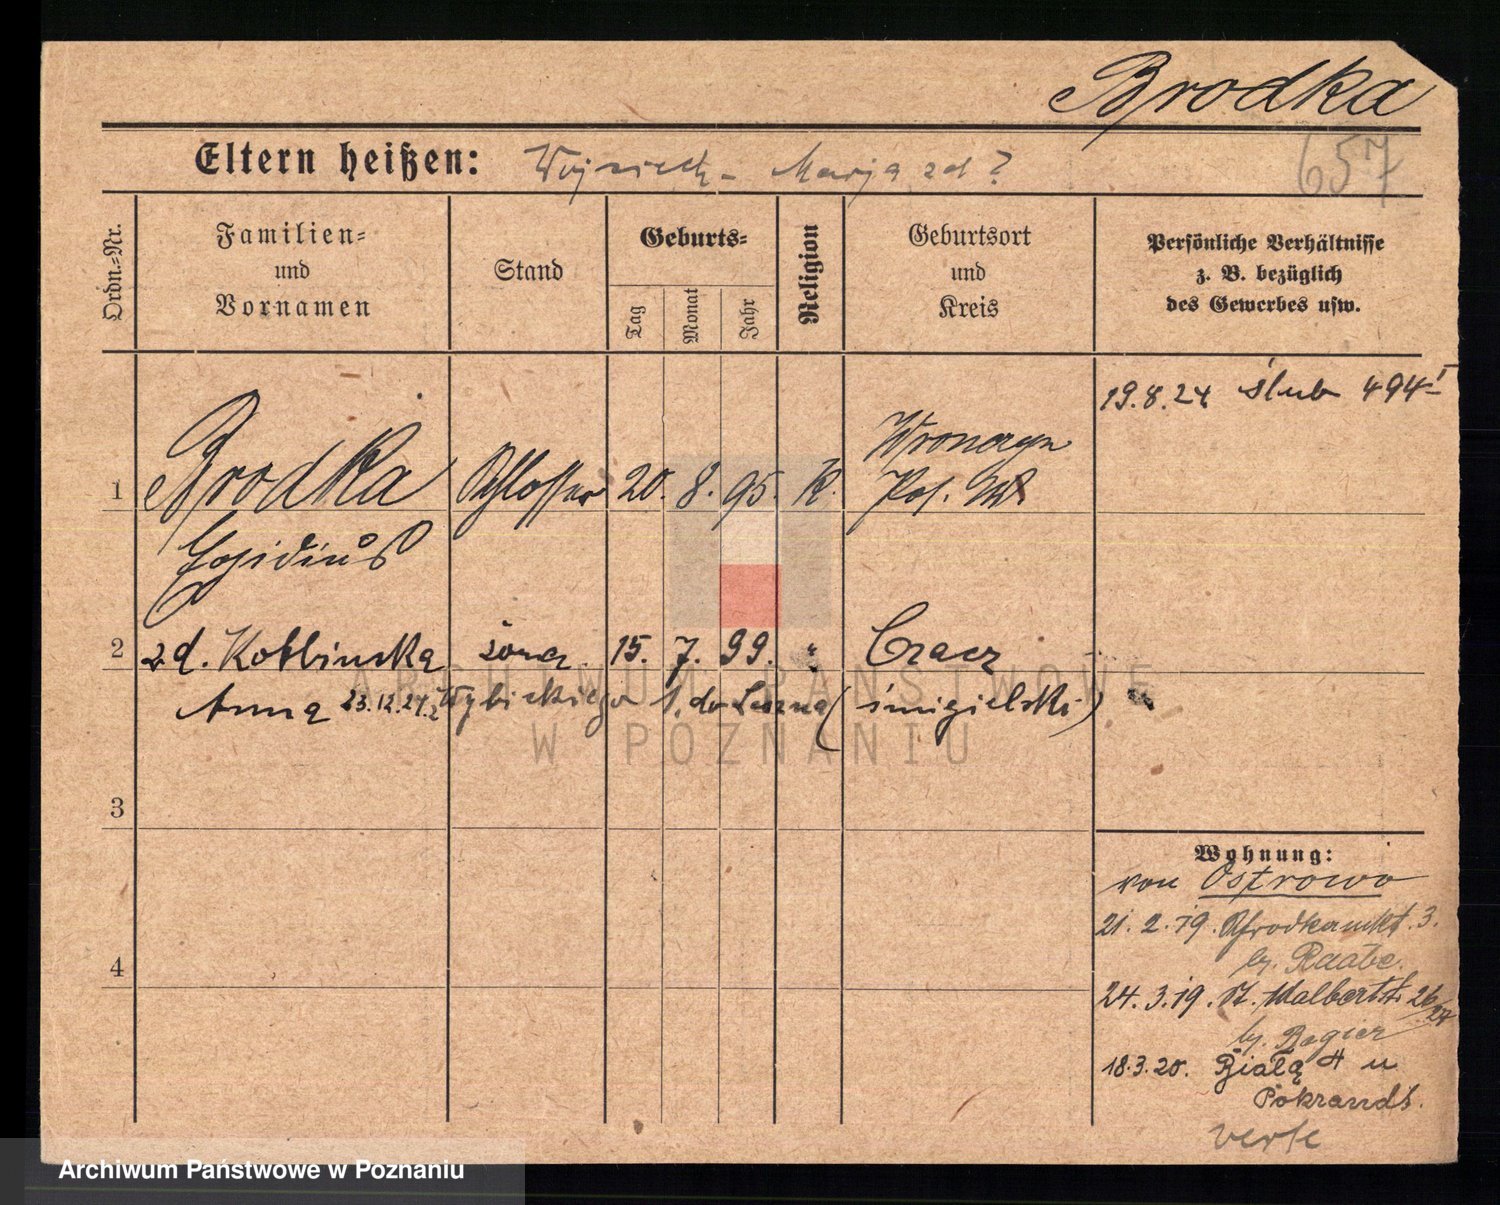 Brodka
657
Eltern heißen: Wojciech - Marja zd ?
Ordn.=Nr.
Familien=
und
Vornamen
Stand
Geburts=
Tag
Monat
Jahr
Religion
Geburtsort
und
Kreis
Persönliche Verhältnisse
z. B. bezüglich
des Gewerbes usw.
19.8.24 ślub 494 I
1 Brodka Schlosser 20. 8. 95. K.
Pos. W
Egidius
2 zd. żona 15. 7. 99. " Czacz
Anna 23.12.24. z Wybickiego 1. do Leszna (śmigielski)
3
4
Wohnung:
von Ostrowo
21. 2. 19. 3.
by. Raabe.
24. 3. 19. St. Adalbertstr. 26/27
by. Rogier
18.3.20. Białą 4 u
Pokrandt.
verte
ARCHIWUM PAŃSTWOWE
W POZNANIU
Archiwum Państwowe w Poznaniu